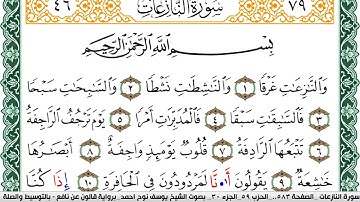 ٤٦ سُورَةُ النَّازِعَاتِ ٧٩
بِسْمِ اللَّهِ الرَّحْمَٰنِ الرَّحِيمِ
وَالنَّٰزِعَٰتِ غَرْقًا ١ وَالنَّٰشِطَٰتِ نَشْطًا ٢ وَالسَّٰبِحَٰتِ سَبْحًا
٣ فَالسَّٰبِقَٰتِ سَبْقًا ٤ فَالْمُدَبِّرَٰتِ أَمْرًا ٥ يَوْمَ تَرْجُفُ الرَّاجِفَةُ
٦ تَتْبَعُهَا الرَّادِفَةُ ٧ قُلُوبٌ يَوْمَئِذٍ وَاجِفَةٌ ٨ أَبْصَٰرُهَا
خَٰشِعَةٌ ٩ يَقُولُونَ أَ.نَّا لَمَرْدُودُونَ فِي الْحَافِرَةِ ١٠ إِذَا كُنَّا
سورة النازعات . الصفحة ٥٨٣. الحزب ٥٩ . الجزء ٣٠ . بصوت الشيخ يوسف نوح احمد . برواية قالون عن نافع - بالتوسيط والصلة